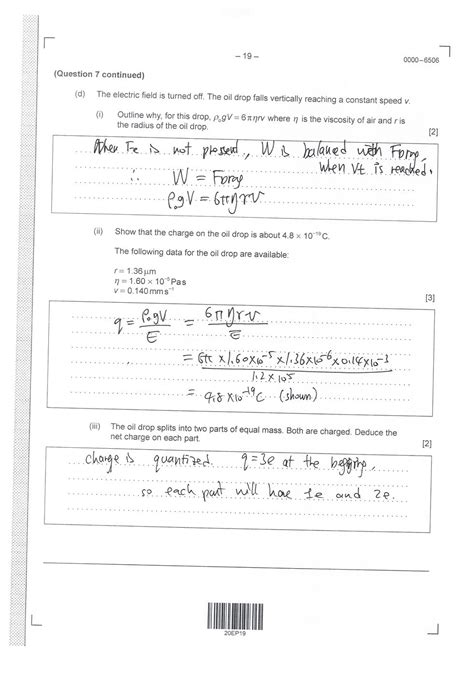 – 19 –
0000–6506
(Question 7 continued)
(d) The electric field is turned off. The oil drop falls vertically reaching a constant speed v.
(i) Outline why, for this drop, ρₒgV = 6πηrv where η is the viscosity of air and r is
the radius of the oil drop.
[2]
When Fe is not pressent, W is balanced with Fdrag,
when Vt is reached.
∴ W = Fdrag
ρₒgV = 6πηrv
(ii) Show that the charge on the oil drop is about 4.8 × 10⁻¹⁹ C.
The following data for the oil drop are available:
r = 1.36 μm
η = 1.60 × 10⁻⁵ Pa s
v = 0.140 mm s⁻¹
[3]
q = ρₒgV / E = 6πηrv / E
= 6π × 1.60×10⁻⁵ × 1.36×10⁻⁶ × 0.14×10⁻³ / 1.2 × 10⁵
= 4.8 × 10⁻¹⁹ C (shown)
(iii) The oil drop splits into two parts of equal mass. Both are charged. Deduce the
net charge on each part.
[2]
charge is quantized. q = 3e at the
so each part will have 1e and 2e.
20EP19